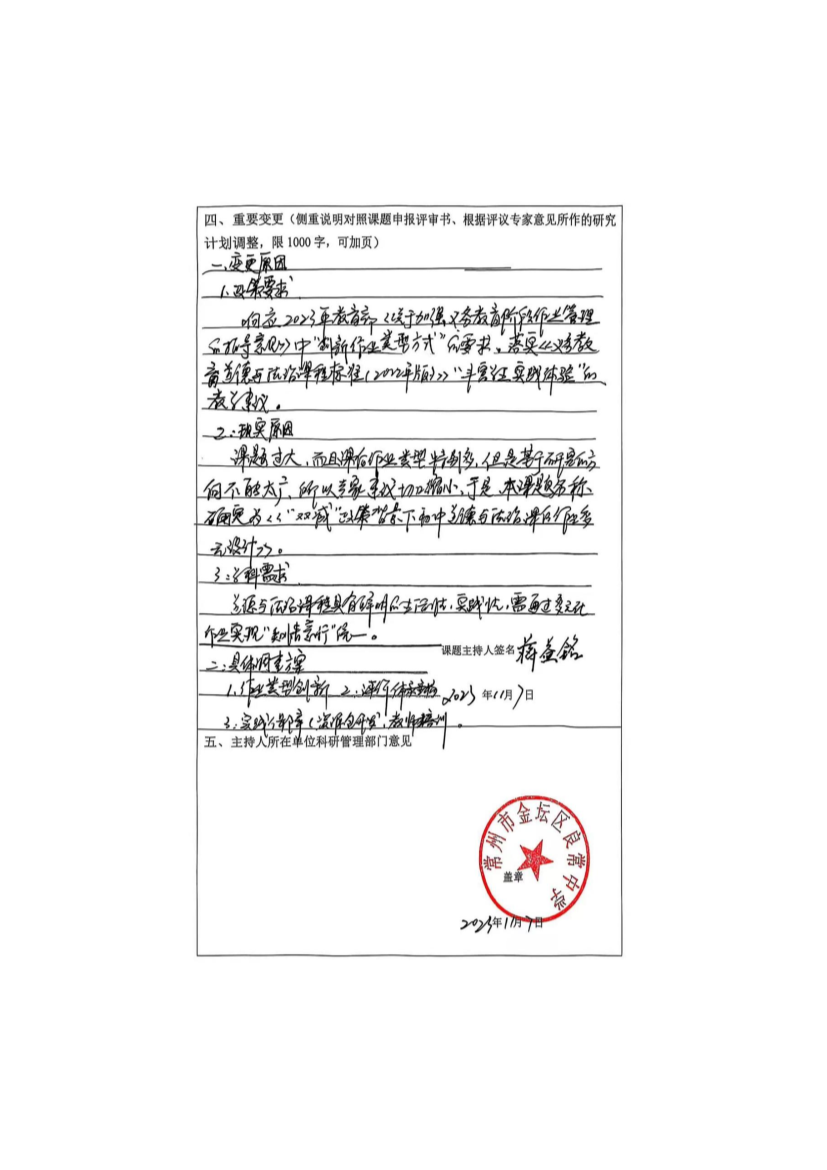 四、重要变更（侧重说明对照课题申报评审书、根据评议专家意见所作的研究
计划调整，限1000字，可加页）
一、变更原因
1.政策要求
响应2023年教育部《关于加强义务教育阶段作业管理
的指导意见》中"创新作业类型方式"的要求，落实《义务教
育道德与法治课程标准(2022年版)》"丰富学生实践体验"的
教学建议。
2.现实原因
课题过大，而且课后作业类型特别多，但是基于研究的方
向不能太广，所以专家建议切口缩小，于是，本课题名称
确定为《"双减"政策背景下初中道德与法治课后作业多
元设计》。
3.学科需求
道德与法治课程具有鲜明的生活性，实践性，需通过多元化
作业实现"知情意行"统一。
课题主持人签名 蒋益铭
二：具体调整方案
1.作业类型创新 2.评价体系
2023年11月7日
3.实践保障（资源包开发，教师培训。
五、主持人所在单位科研管理部门意见
常州市金坛区良常中学
盖章
2023年11月7日